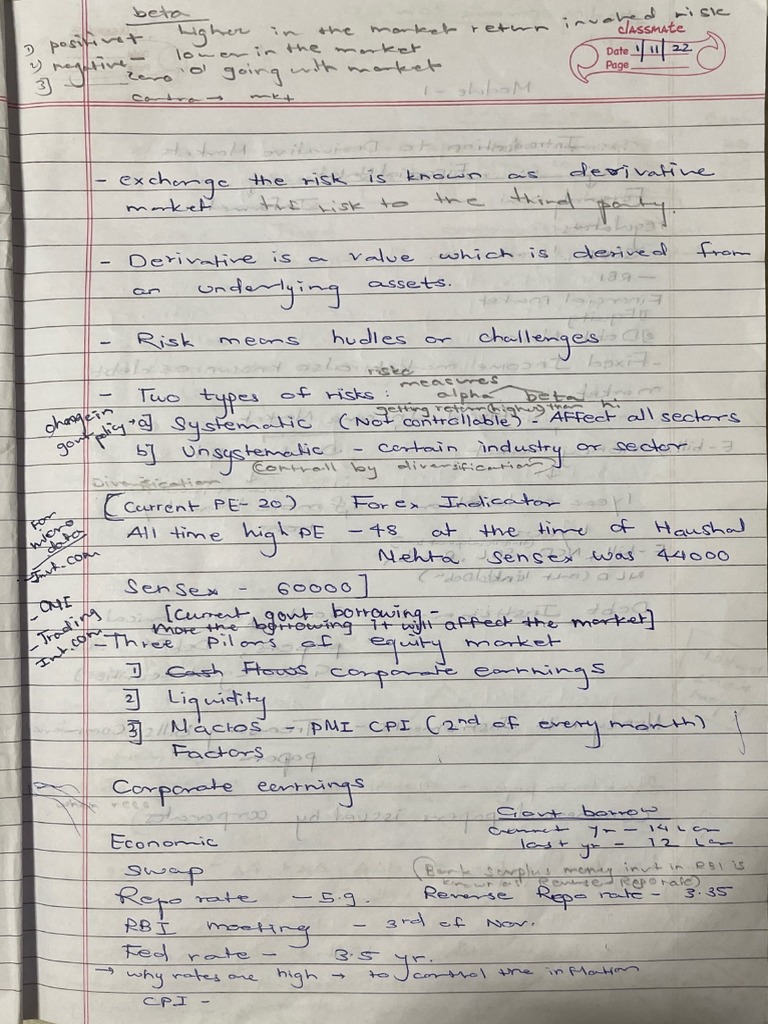 beta
1) positive+ higher in the market return involved risk
2) negative - lower in the market
3] zero 0 going with market
contra → mkt
classmate
Date 1/11/22
Page
- exchange the risk is known as derivative
market the risk to the third party.
- Derivative is a value which is derived from
an underlying assets.
- Risk means hudles or challenges
risks
measures
- Two types of risks : alpha beta
getting return (higher) than
change in
govt policy → a] Systematic (Not controllable) - Affect all sectors
b] Unsystematic - certain industry or sector
(Contrall by diversification)
Diversification
[Current PE - 20) Forex Indicator
All time high PE - 48 at the time of Haushal
Mehta sensex was 44000
Sensex - 60000]
For
micro
data
- Invt.com
- CMI
- Trading
Int.com
[Current govt borrowing -
more the borrowing it will affect the market]
- Three Pilars of equity market
1] Cash Flows corporate earnings
2] Liquidity
3] Mactos - PMI CPI (2nd of every month)
Factors
Corporate eartnings
Govt borrow
current yr - 14 L cr
Economic
last yr - 12 L cr
Swap
(Bank surplus money invt in RBI is
known as Reversed Repo rate)
Repo rate - 5.9. Reverse Repo rate - 3.35
RBI meeting - 3rd of Nov.
Fed rate - 3.5 yr.
→ why rates are high → to control the inflation
CPI -